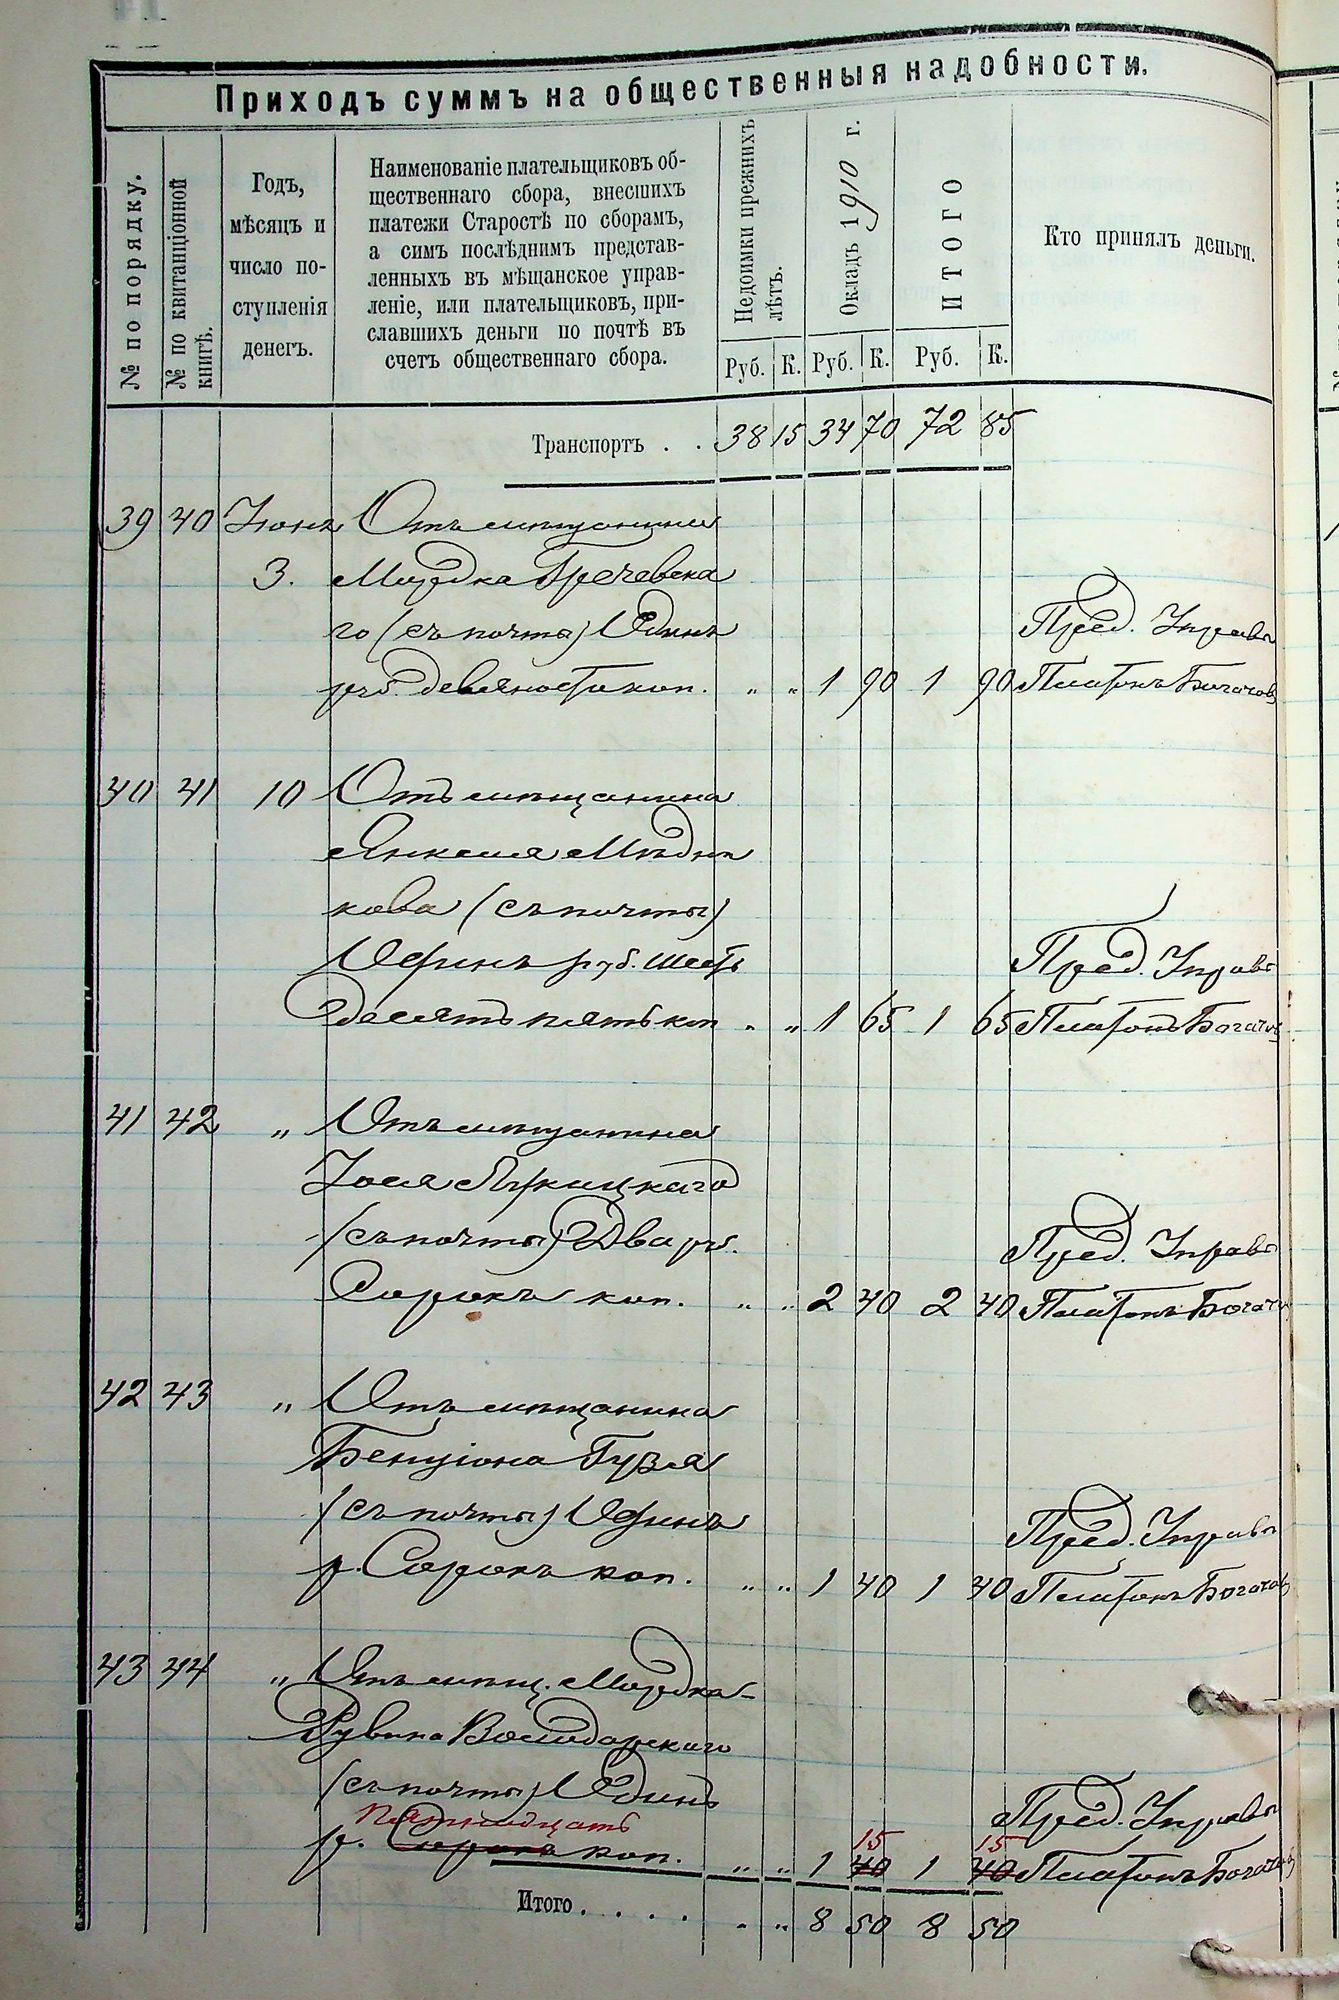 Приходъ суммъ на общественныя надобности.
№ по порядку.
№ по квитанціонной книгѣ.
Годъ,
мѣсяцъ и
число по-
ступленія
денегъ.
Наименованіе плательщиковъ об-
щественнаго сбора, внесшихъ
платежи Старостѣ по сборамъ,
а симъ послѣднимъ представ-
ленныхъ въ мѣщанское управ-
леніе, или плательщиковъ, при-
славшихъ деньги по почтѣ въ
счетъ общественнаго сбора.
Недоимки прежнихъ
лѣтъ.
Окладъ 1910 г.
ИТОГО
Кто принялъ деньги.
Руб. К. Руб. К. Руб. К.
Транспортъ . . 38 15 34 70 72 85
39 40 Іюнь Отъ мѣщанина
3. Мордка Гречевска
го (съ почты) Одинъ Пред. Управы
руб. девяносто коп. " " 1 90 1 90 Платонъ Богачовъ
40 41 10 Отъ мѣщанина
Янкеля Мѣдни
кова (съ почты)
Одинъ руб. шесть Пред. Управы
десятъ пять коп " " 1 65 1 65 Платонъ Богачов
41 42 " Отъ мѣщанина
Іося
(съ почты) Два рб. Пред. Управы
Сорокъ коп. " " 2 40 2 40 Платонъ Богачов
42 43 " Отъ мѣщанина
Бенціона Гузя
(съ почты) Одинъ Пред. Управы
р. Сорокъ коп. " " 1 40 1 40 Платонъ Богачовъ
43 44 " Отъ мѣщ. Мордка-
Рувина Володарскаго
(съ почты) Одинъ Пред. Управы
пятнадцать 15 15
р. Сорокъ коп. " " 1 40 1 40 Платонъ Богачов
Итого . . . . " " 8 50 8 50